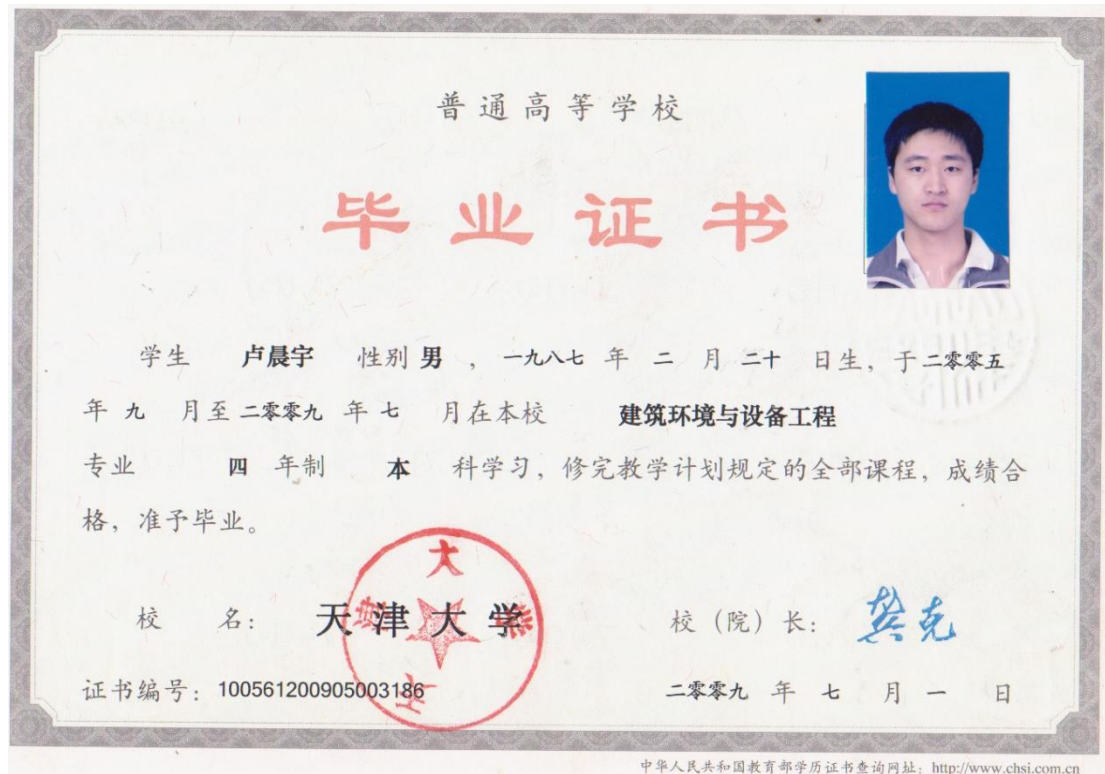 普通高等学校
毕业证书
学生 卢晨宇 性别 男 ，一九八七 年 二 月 二十 日生，于二零零五
年 九 月至 二零零九 年 七 月在本校 建筑环境与设备工程
专业 四 年制 本 科学习，修完教学计划规定的全部课程，成绩合
格，准予毕业。
校 名： 天津大学
天津大学
校（院）长： 龚克
证书编号：100561200905003186
二零零九 年 七 月 一 日
中华人民共和国教育部学历证书查询网址：http://www.chsi.com.cn